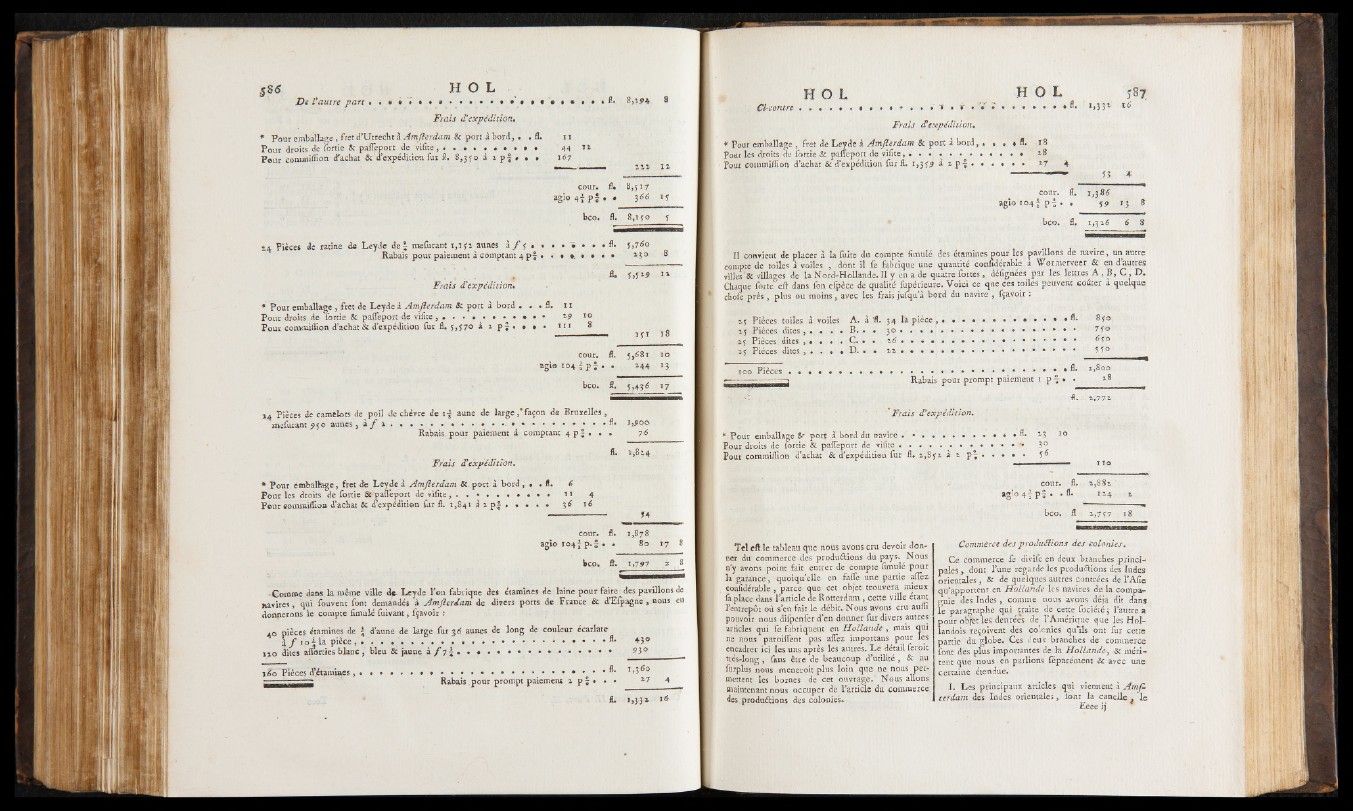 586 H O L
De l'autre part . . . . . . . . . . fl. 8,294 8
Frais d'expédition.
* Pour emballage, fret d'Utrecht à Amsterdam & port à bord, . . fl. 11
Pour droits de sortie & passeport de visite, . . . . . . 44 12
Pour commission d'achat & d'expédition sur fl. 8,350 à 2 p% . . . 167
222 12
cour. fl. 8,517
agio 4½ p% . . 366 15
bco. fl. 8,150 5
24 Pièces de ratine de Leyde de mesurant 1,152 aunes à f 5 . . . . . . fl. 5,760
Rabais pour paiement à comptant 4 p% . . . . . . 230 8
fl. 5,529 12
Frais d'expédition.
* Pour emballage, fret de Leyde à Amsterdam & port à bord . . . fl. 11
Pour droits de sortie & passeport de visite, . . . . . . 29 10
Pour commission d'achat & d'expédition sur fl. 5,570 à 2 p% . . . . 111 8
151 18
cour. fl. 5,681 10
agio 104½ p% . . 244 13
bco. fl. 5,436 17
24 Pièces de camelots de poil de chévre de aune de large, façon de Bruxelles,
mesurant 950 aunes, à f 2 . . . . . . . . . . fl. 1,900
Rabais pour paiement à comptant 4 p% . . . 76
fl. 1,824
Frais d'expédition.
* Pour emballage, fret de Leyde à Amsterdam & port à bord, . . fl. 6
Pour les droits de sortie & passeport de visite, . . . . . . 11 4
Pour commission d'achat & d'expédition sur fl. 1,841 à 2 p% . . . . . 36 16
54
cour. fl. 1,878
agio 104½ p.% . . 80 17 8
bco. fl. 1,797 2 8
Comme dans la même ville de Leyde l'on fabrique des étamines de laine pour faire des pavillons de
navires, qui souvent sont demandés à Amsterdam de divers ports de France & d'Espagne, nous en
donnerons le compte simulé suivant, sçavoir :
40 pièces étamines de d'aune de large sur 36 aunes de long de couleur écarlate
à f 10 la pièce, . . . . . . . . . . fl. 430
120 dites assorties blanc, bleu & jaune à f 7 . . . . . . . . . . 930
160 Pièces d'étamines, . . . . . . . . . . fl. 1,360
Rabais pour prompt paiement 2 p% . . . 27 4
fl. 1,332 16
H O L H O L 587
Ci-contre . . . . . . . . . . fl. 1,332 16
Frais d'expédition.
* Pour emballage, fret de Leyde à Amsterdam & port à bord, . . . . fl. 18
Pour les droits de sortie & passeport de visite, . . . . . . 28
Pour commission d'achat & d'expédition sur fl. 1,359 à 2 p% . . . . . . 27 4
53 4
cour. fl. 1,386
agio 104½ p% . . 59 13 8
bco. fl. 1,326 6 8
Il convient de placer à la suite du compte simulé des étamines pour les pavillons de navire, un autre
compte de toiles à voiles, dont il se fabrique une quantité considérable à Wormerveer & en d'autres
villes & villages de la Nord-Hollande. Il y en a de quatre sortes, désignées par les lettres A, B, C, D.
Chaque sorte est dans son espèce de qualité supérieure. Voici ce que ces toiles peuvent coûter à quelque
chose près, plus ou moins, avec les frais jusqu'à bord du navire, sçavoir :
25 Pièces toiles à voiles A. à fl. 34 la pièce, . . . . . . . . . . fl. 850
25 Pièces dites, . . . . B. . . 30 . . . . . . . . . . 750
25 Pièces dites, . . . . C. . . 26 . . . . . . . . . . 650
25 Pièces dites, . . . . D. . . 22 . . . . . . . . . . 550
100 Pièces . . . . . . . . . . fl. 2,800
Rabais pour prompt paiement 1 p% . . 28
fl. 2,772
Frais d'expédition.
* Pour emballage & port à bord du navire . . . . . . . . . fl. 23 10
Pour droits de sortie & passeport de visite . . . . . . 30
Pour commission d'achat & d'expédition sur fl. 2,852 à 2 p% . . . . . 56
110
cour. fl. 2,882
agio 4½ p% . . fl. 124 2
bco. fl 2,757 18
Tel est le tableau que nous avons cru devoir donner
du commerce des productions du pays. Nous
n'y avons point fait entrer de compte simulé pour
la garance, quoiqu'elle en fasse une partie assez
considérable, parce que cet objet trouvera mieux
sa place dans l'article de Rotterdam, cette ville étant
l'entrepôt où s'en fait le débit. Nous avons cru aussi
pouvoir nous dispenser d'en donner sur divers autres
articles qui se fabriquent en Hollande, mais qui
ne nous paroissent pas assez importans pour les
encadrer ici les uns après les autres. Le détail seroit
très-long, sans être de beaucoup d'utilité, & au
surplus nous meneroit plus loin que ne nous permettent
les bornes de cet ouvrage. Nous allons
maintenant nous occuper de l'article du commerce
des productions des colonies.
Commerce des productions des colonies.
Ce commerce se divise en deux branches principales,
dont l'une regarde les productions des Indes
orientales, & de quelques autres contrées de l'Asie
qu'apportent en Hollande les navires de la compagnie
des Indes, comme nous avons déjà dit dans
le paragraphe qui traite de cette société ; l'autre a
pour objet les denrées de l'Amérique que les Hollandois
reçoivent des colonies qu'ils ont sur cette
partie du globe. Ces deux branches de commerce
sont des plus importantes de la Hollande, & méritent
que nous en parlions séparément & avec une
certaine étendue.
I. Les principaux articles qui viennent à Amsterdam
des Indes orientales, sont la canelle, le
Eeee ij